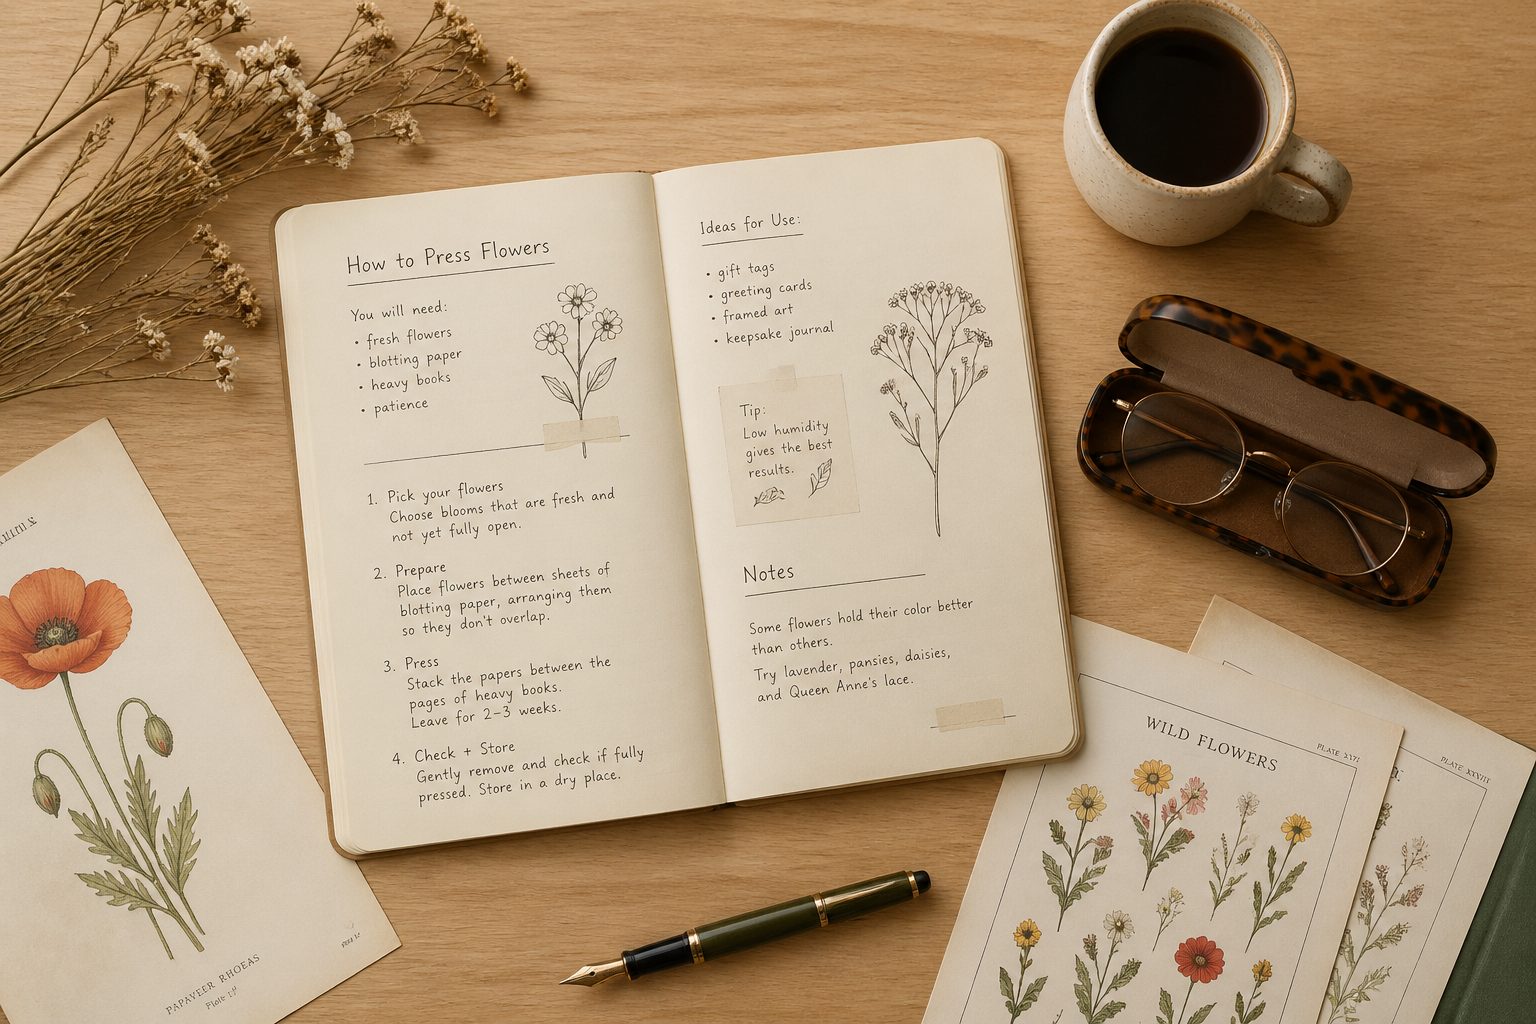 How to Press Flowers
You will need:
• fresh flowers
• blotting paper
• heavy books
• patience
1. Pick your flowers
Choose blooms that are fresh and
not yet fully open.
2. Prepare
Place flowers between sheets of
blotting paper, arranging them
so they don't overlap.
3. Press
Stack the papers between the
pages of heavy books.
Leave for 2–3 weeks.
4. Check + Store
Gently remove and check if fully
pressed. Store in a dry place.
Ideas for Use:
• gift tags
• greeting cards
• framed art
• keepsake journal
Tip:
Low humidity
gives the best
results.
Notes
Some flowers hold their color better
than others.
Try lavender, pansies, daisies,
and Queen Anne's lace.
PAPAVEER RHOEAS
WILD FLOWERS
PLATE
PLATE